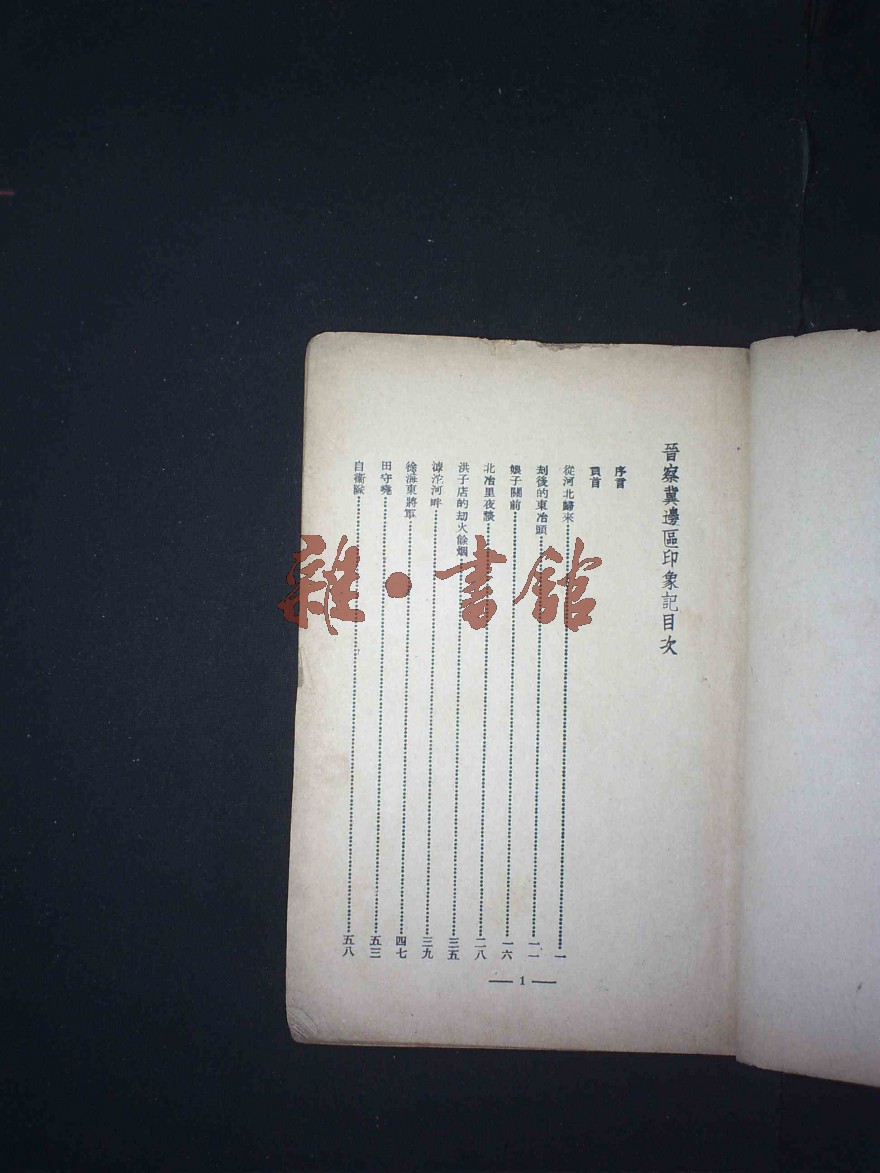 晉察冀邊區印象記目次
序言
頁首
從河北歸來…………一
刼後的東冶頭…………一二
娘子關前…………一六
北冶里夜談…………二八
洪子店的刼火餘烟…………三五
滹沱河畔…………三九
徐海東將軍…………四七
田守堯…………五三
自衞隊…………五八
— 1 —
雜·書館